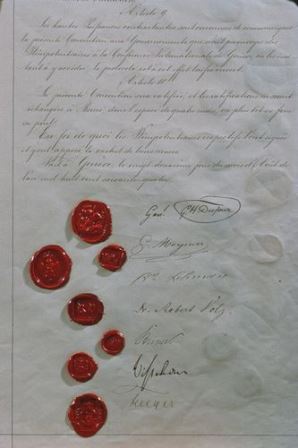 Article 9
Les hautes Puissances contractantes sont convenues de communiquer
la présente Convention aux Gouvernements qui n'ont pu envoyer des
Plénipotentiaires à la Conférence Internationale de Genève, en les invi-
tant à y accéder; le protocole est à cet effet laissé ouvert.
Article 10
La présente Convention sera ratifiée, et les ratifications en seront
échangées à Berne, dans l'espace de quatre mois, ou plus tôt si faire
se peut.
En foi de quoi les Plénipotentiaires respectifs l'ont signée
et y ont apposé le cachet de leurs armes.
Fait à Genève, le vingt deuxième jour du mois d'Août de
l'an mil huit cent soixante quatre.
Genl. G H Dufour
G. Moynier
Dr Lehmann
Dr. Robert Volz
Steiner
Visschers